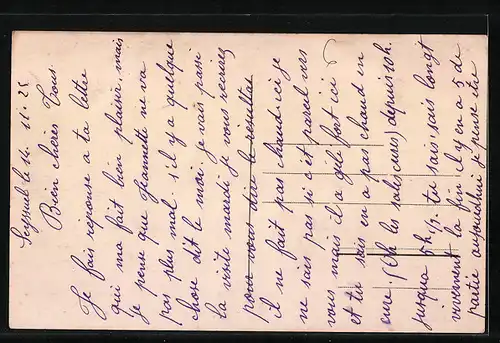 Seyssuel le 11. 11. 25
Bien chères Tous
Je fais reponse a ta lettre
qui ma fait bien plaisir mais
je pense que Jeannette ne va
pas plus mal. s'il y a quelque
chose dit le moi je vais passé
la visite mardi je vous recrirez
pour vous dire le resultat
il ne fait pas chaud ici je
ne sais pas si c'est pareil vers
vous mais il a gelé fort ici
et tu sais on a pas chaud en
cure. (Oh les saliscures) depuis 10h.
jusqua 5h 1/2. tu sais sais longt
vivement la fin il y en a 5 de
partie aujourdhui je pense etre